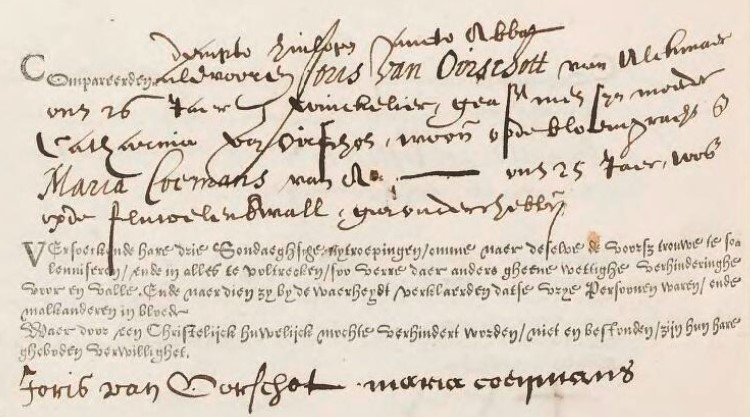 Compareerden als vooren Joris Van Oirschott van Alckmaer
out 26 Jaer, winckelier, geass. met syn moeder
Catharina van Oirschot, woont op de bloemgracht &
Maria Coemans van A. out 25 Jaer, wo
op de fluwelenburghwall,
VErsoeckende hare drie Sondaeghsche uytroepingen / omme naer deselve de voorsz trouwe te sol-
lenniseren / ende in alles te voltrecken / soo verre daer anders gheene wettighe verhinderinghe
voor en valle. Ende naer dien zy by de waerheydt verklaerden datse vrye Persoonen waren / ende
malkanderen in bloede
Waer door een Christelijck huwelijck mochte verhindert worden / niet en bestonden / zijn hun hare
gheboden verwillighet.
Joris van Oorschot maria coeymans